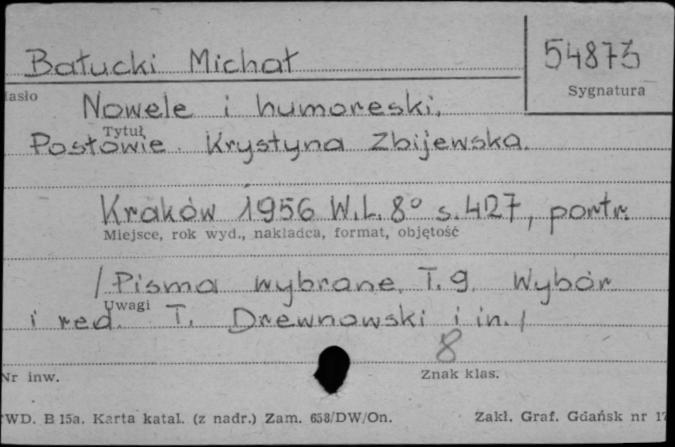 Bałucki Michał
54873
Sygnatura
asło
Nowele i humoreski.
Tytuł
Posłowie Krystyna Zbijewska.
Kraków 1956 W.L. 8° s. 427, portr.
Miejsce, rok wyd., nakładca, format, objętość
/Pisma wybrane. T. 9. Wybór
Uwagi
i red. T. Drewnowski i in./
8
Nr inw.
Znak klas.
WD. B 15a. Karta katal. (z nadr.) Zam. 658/DW/On.
Zakł. Graf. Gdańsk nr 17